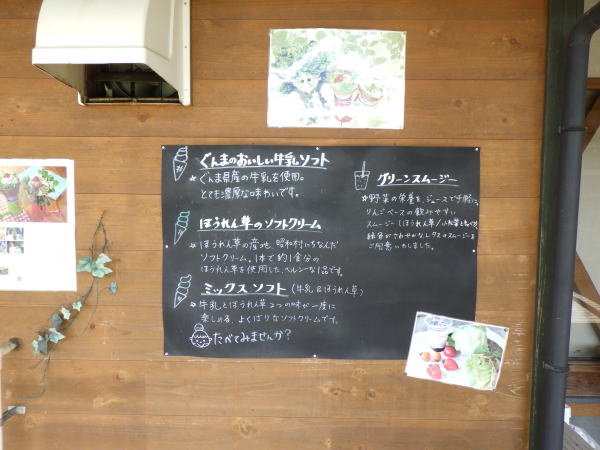 ぐんまのおいしい牛乳ソフト
ぐんま県産の牛乳を使用。
とても濃厚な味わいです。
ほうれん草のソフトクリーム
ほうれん草の産地、昭和村にちなんだ
ソフトクリーム。1本で約1食分の
ほうれん草を使用した、ヘルシーな1品です。
ミックス ソフト (牛乳&ほうれん草)
牛乳とほうれん草2つの味が一度に
楽しめる、よくばりなソフトクリームです。
たべてみませんか?
グリーンスムージー
野菜の栄養を、ジュースで手軽に。
りんごベースの飲みやすい
スムージー(ほうれん草/小松菜と
さわやかなレタスのスムージーを
ご用意いたしました。